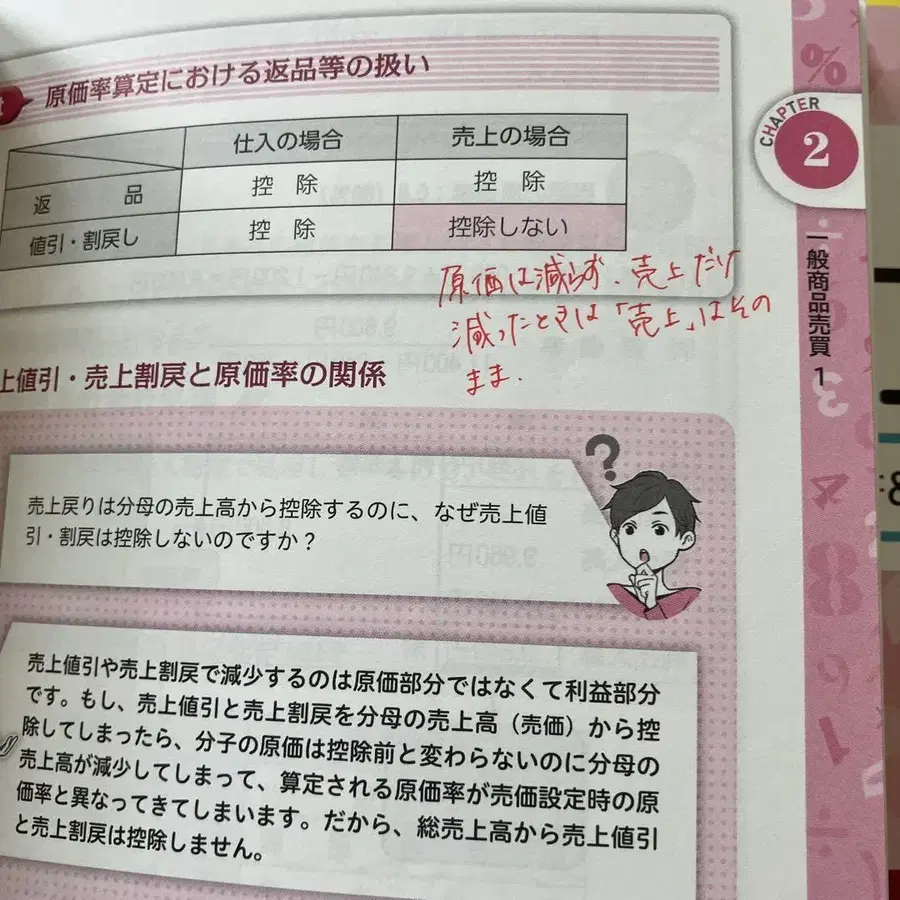 原価率算定における返品等の扱い
仕入の場合 売上の場合
返品 控除 控除
値引・割戻し 控除 控除しない
原価は減らず、売上だけ
減ったときは「売上」はその
まま.
上値引・売上割戻と原価率の関係
?
売上戻りは分母の売上高から控除するのに、なぜ売上値
引・割戻は控除しないのですか?
売上値引や売上割戻で減少するのは原価部分ではなくて利益部分
です。もし、売上値引と売上割戻を分母の売上高(売価)から控
除してしまったら、分子の原価は控除前と変わらないのに分母の
売上高が減少してしまって、算定される原価率が売価設定時の原
価率と異なってきてしまいます。だから、総売上高から売上値引
と売上割戻は控除しません。
CHAPTER
2
一般商品売買 1